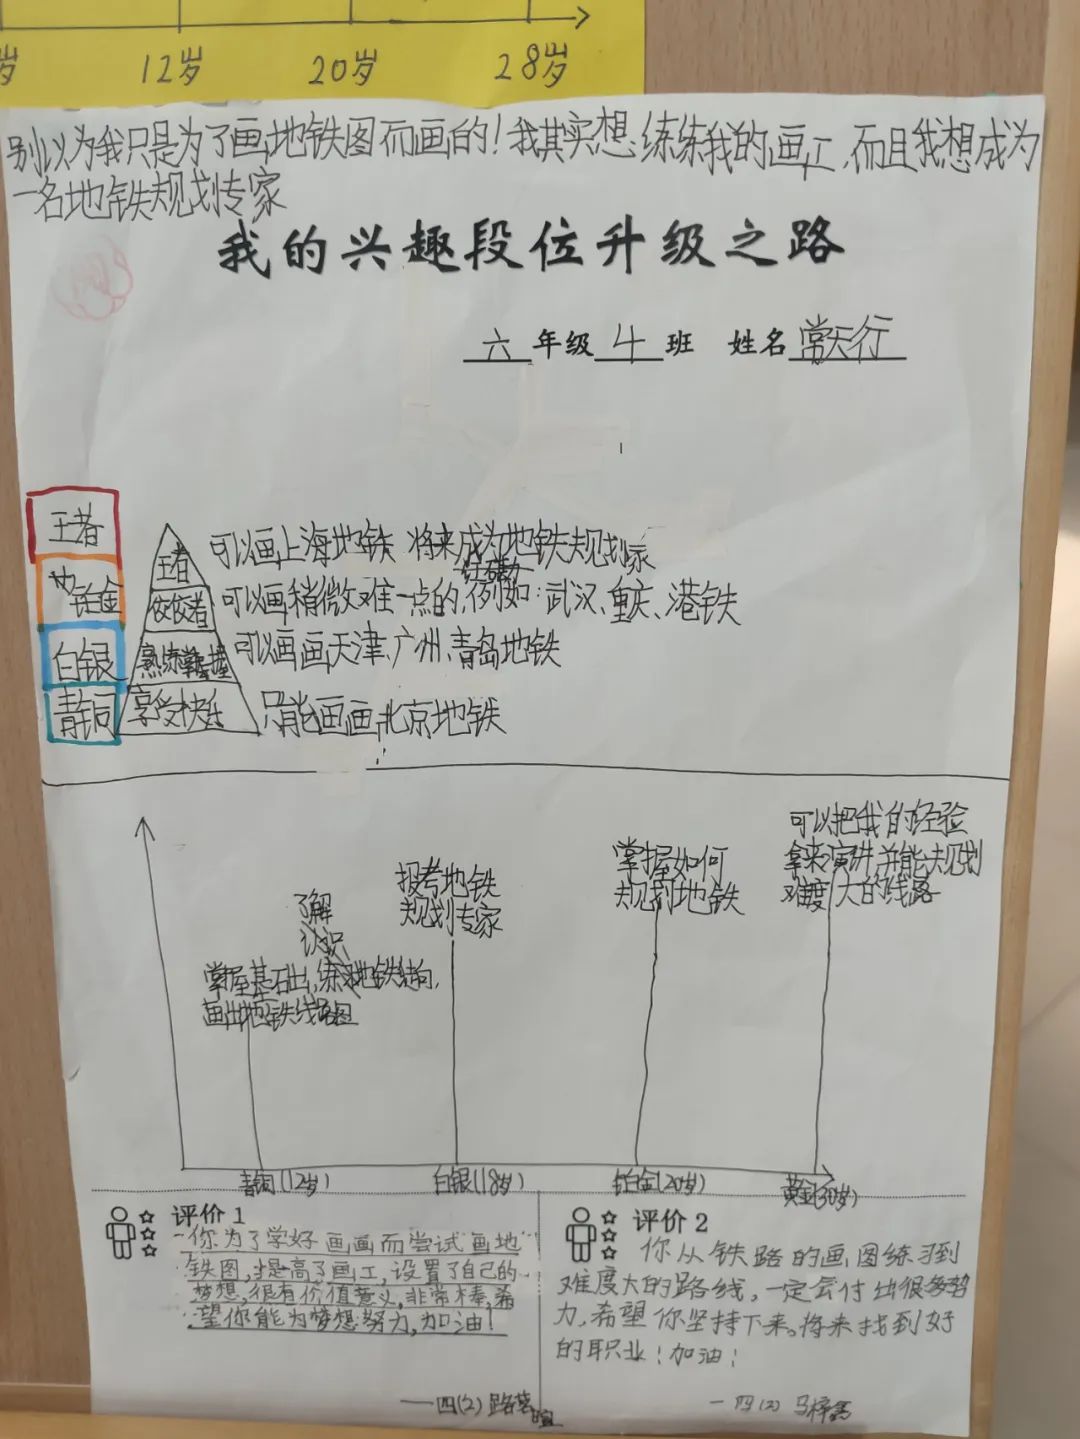 岁
12岁
20岁
28岁
别以为我只是为了画地铁图而画的!我其实想练练我的画工,而且我想成为
一名地铁规划专家
我的兴趣段位升级之路
六年级4班 姓名常天行
王者
王者
可以画上海地铁 将来成为地铁规划家
铂金
佼佼者
可以画稍微难一点的,例如:武汉、重庆、港铁
白银
熟练掌握
可以画画天津、广州、青岛地铁
青铜
享受快乐
只能画画北京地铁
可以把我的经验
拿来演讲并能规划
难度大的线路
掌握如何
规划地铁
报考地铁
规划专家
了解
认识
掌握基础,练习地铁结构,
画出地铁线路图
青铜(12岁)
白银(18岁)
铂金(20岁)
黄金(30岁)
评价1
你为了学好画画而尝试画地
铁图,提高了画工,设置了自己的
梦想,很有价值意义,非常棒,希
望你能为梦想努力,加油!
——四(2) 路
评价2
你从铁路的画图练习到
难度大的路线,一定会付出很多努
力,希望你坚持下来。将来找到好
的职业!加油!
—四(2) 马梓